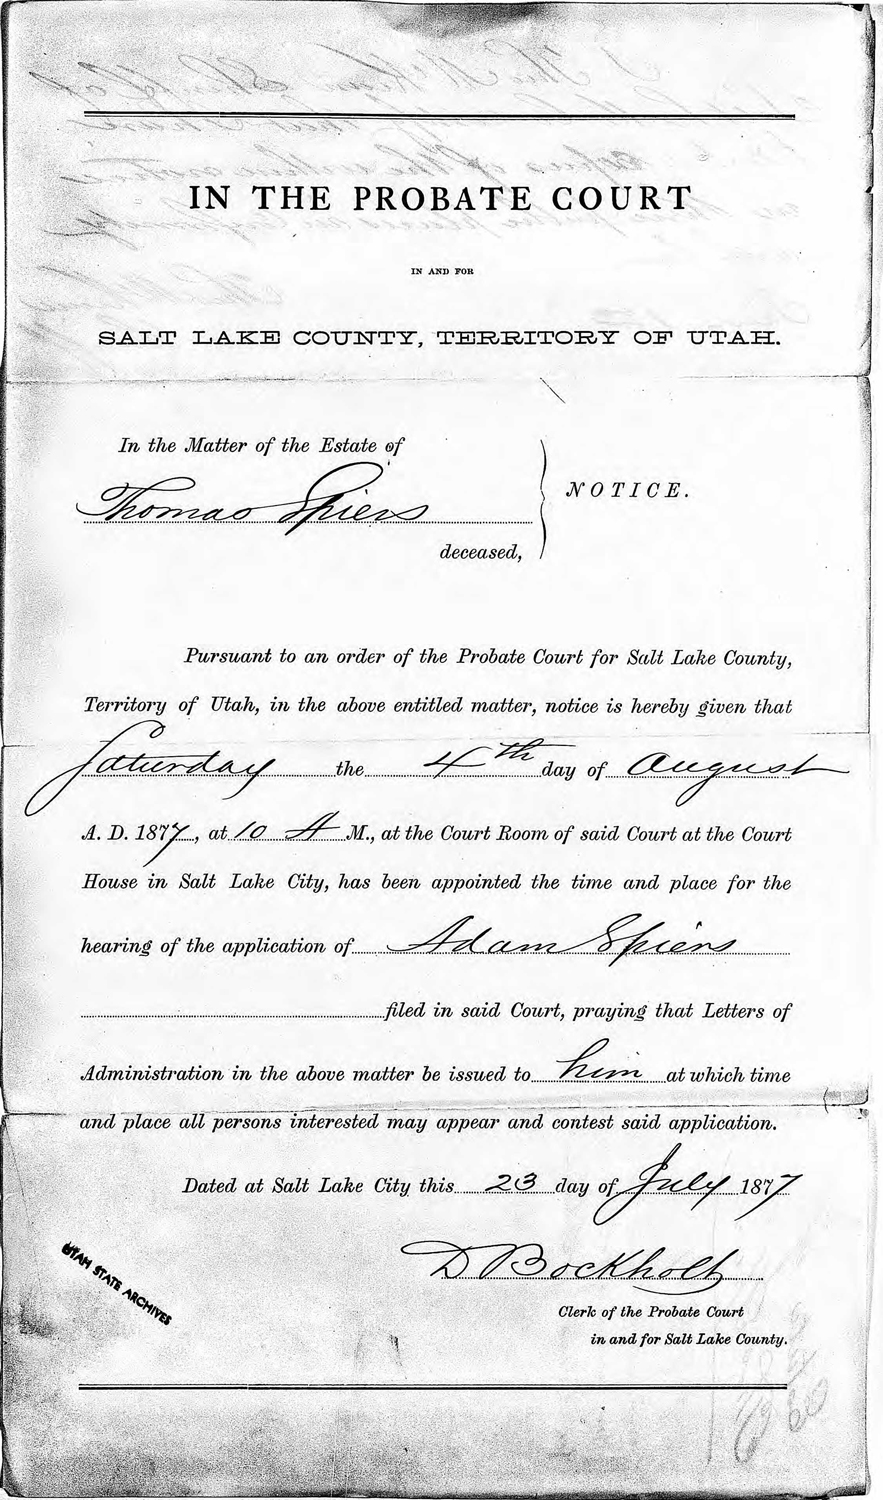 IN THE PROBATE COURT
IN AND FOR
SALT LAKE COUNTY, TERRITORY OF UTAH.
In the Matter of the Estate of
Thomas Spiers
deceased,
NOTICE.
Pursuant to an order of the Probate Court for Salt Lake County,
Territory of Utah, in the above entitled matter, notice is hereby given that
Saturday the 4th day of August
A. D. 1877, at 10 A M., at the Court Room of said Court at the Court
House in Salt Lake City, has been appointed the time and place for the
hearing of the application of Adam Spiers
filed in said Court, praying that Letters of
Administration in the above matter be issued to him at which time
and place all persons interested may appear and contest said application.
Dated at Salt Lake City this 23 day of July 1877
D Bockholt
Clerk of the Probate Court
in and for Salt Lake County.
UTAH STATE ARCHIVES